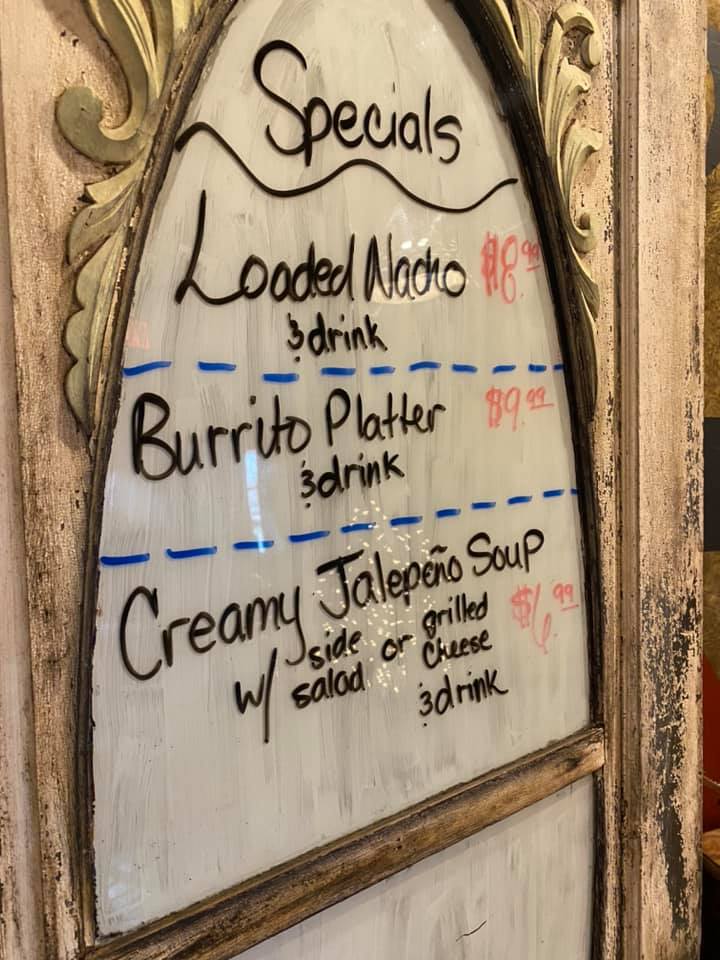 Specials
Loaded Nacho $8.99
& drink
Burrito Platter $9.99
& drink
Creamy Jalepeño Soup $6.99
w/ side salad or grilled cheese
& drink